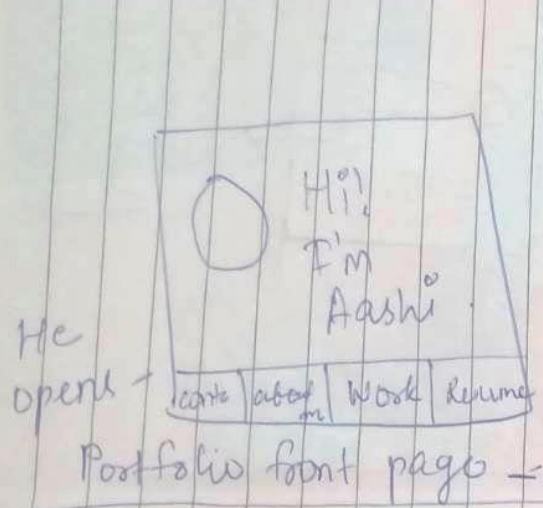 Hi!
I'm
Aashi
He
opens -
about m
Work
Resume
Portfolio front page -